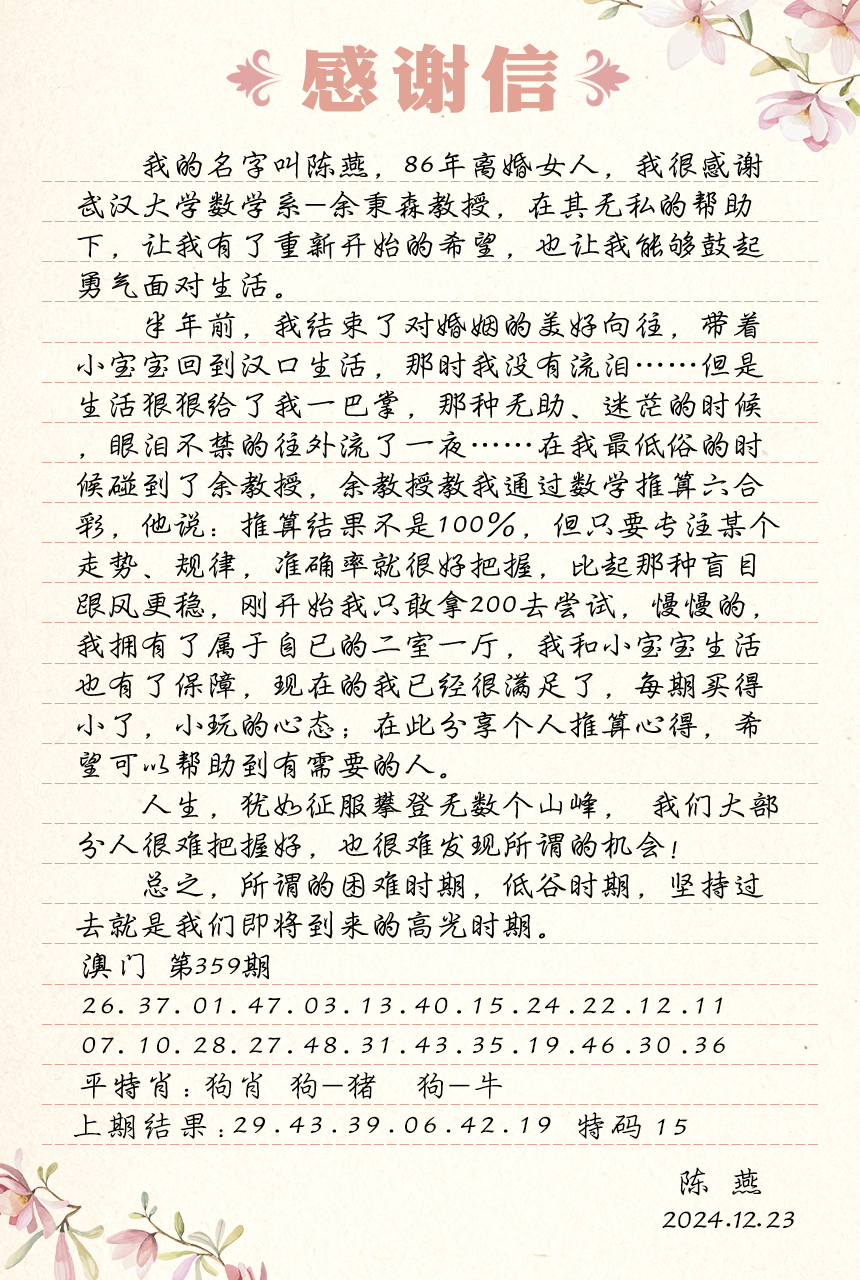 感谢信
我的名字叫陈燕，86年离婚女人，我很感谢
武汉大学数学系—余秉森教授，在其无私的帮助
下，让我有了重新开始的希望，也让我能够鼓起
勇气面对生活。
半年前，我结束了对婚姻的美好向往，带着
小宝宝回到汉口生活，那时我没有流泪……但是
生活狠狠给了我一巴掌，那种无助、迷茫的时候
，眼泪不禁的往外流了一夜……在我最低俗的时
候碰到了余教授，余教授教我通过数学推算六合
彩，他说：推算结果不是100%，但只要专注某个
走势、规律，准确率就很好把握，比起那种盲目
跟风更稳，刚开始我只敢拿200去尝试，慢慢的，
我拥有了属于自已的二室一厅，我和小宝宝生活
也有了保障，现在的我已经很满足了，每期买得
小了，小玩的心态；在此分享个人推算心得，希
望可以帮助到有需要的人。
人生，犹如征服攀登无数个山峰， 我们大部
分人很难把握好，也很难发现所谓的机会！
总之，所谓的困难时期，低谷时期，坚持过
去就是我们即将到来的高光时期。
澳门 第359期
26.37.01.47.03.13.40.15.24.22.12.11
07.10.28.27.48.31.43.35.19.46.30.36
平特肖：狗肖 狗—猪 狗—牛
上期结果：29.43.39.06.42.19 特码 15
陈 燕
2024.12.23